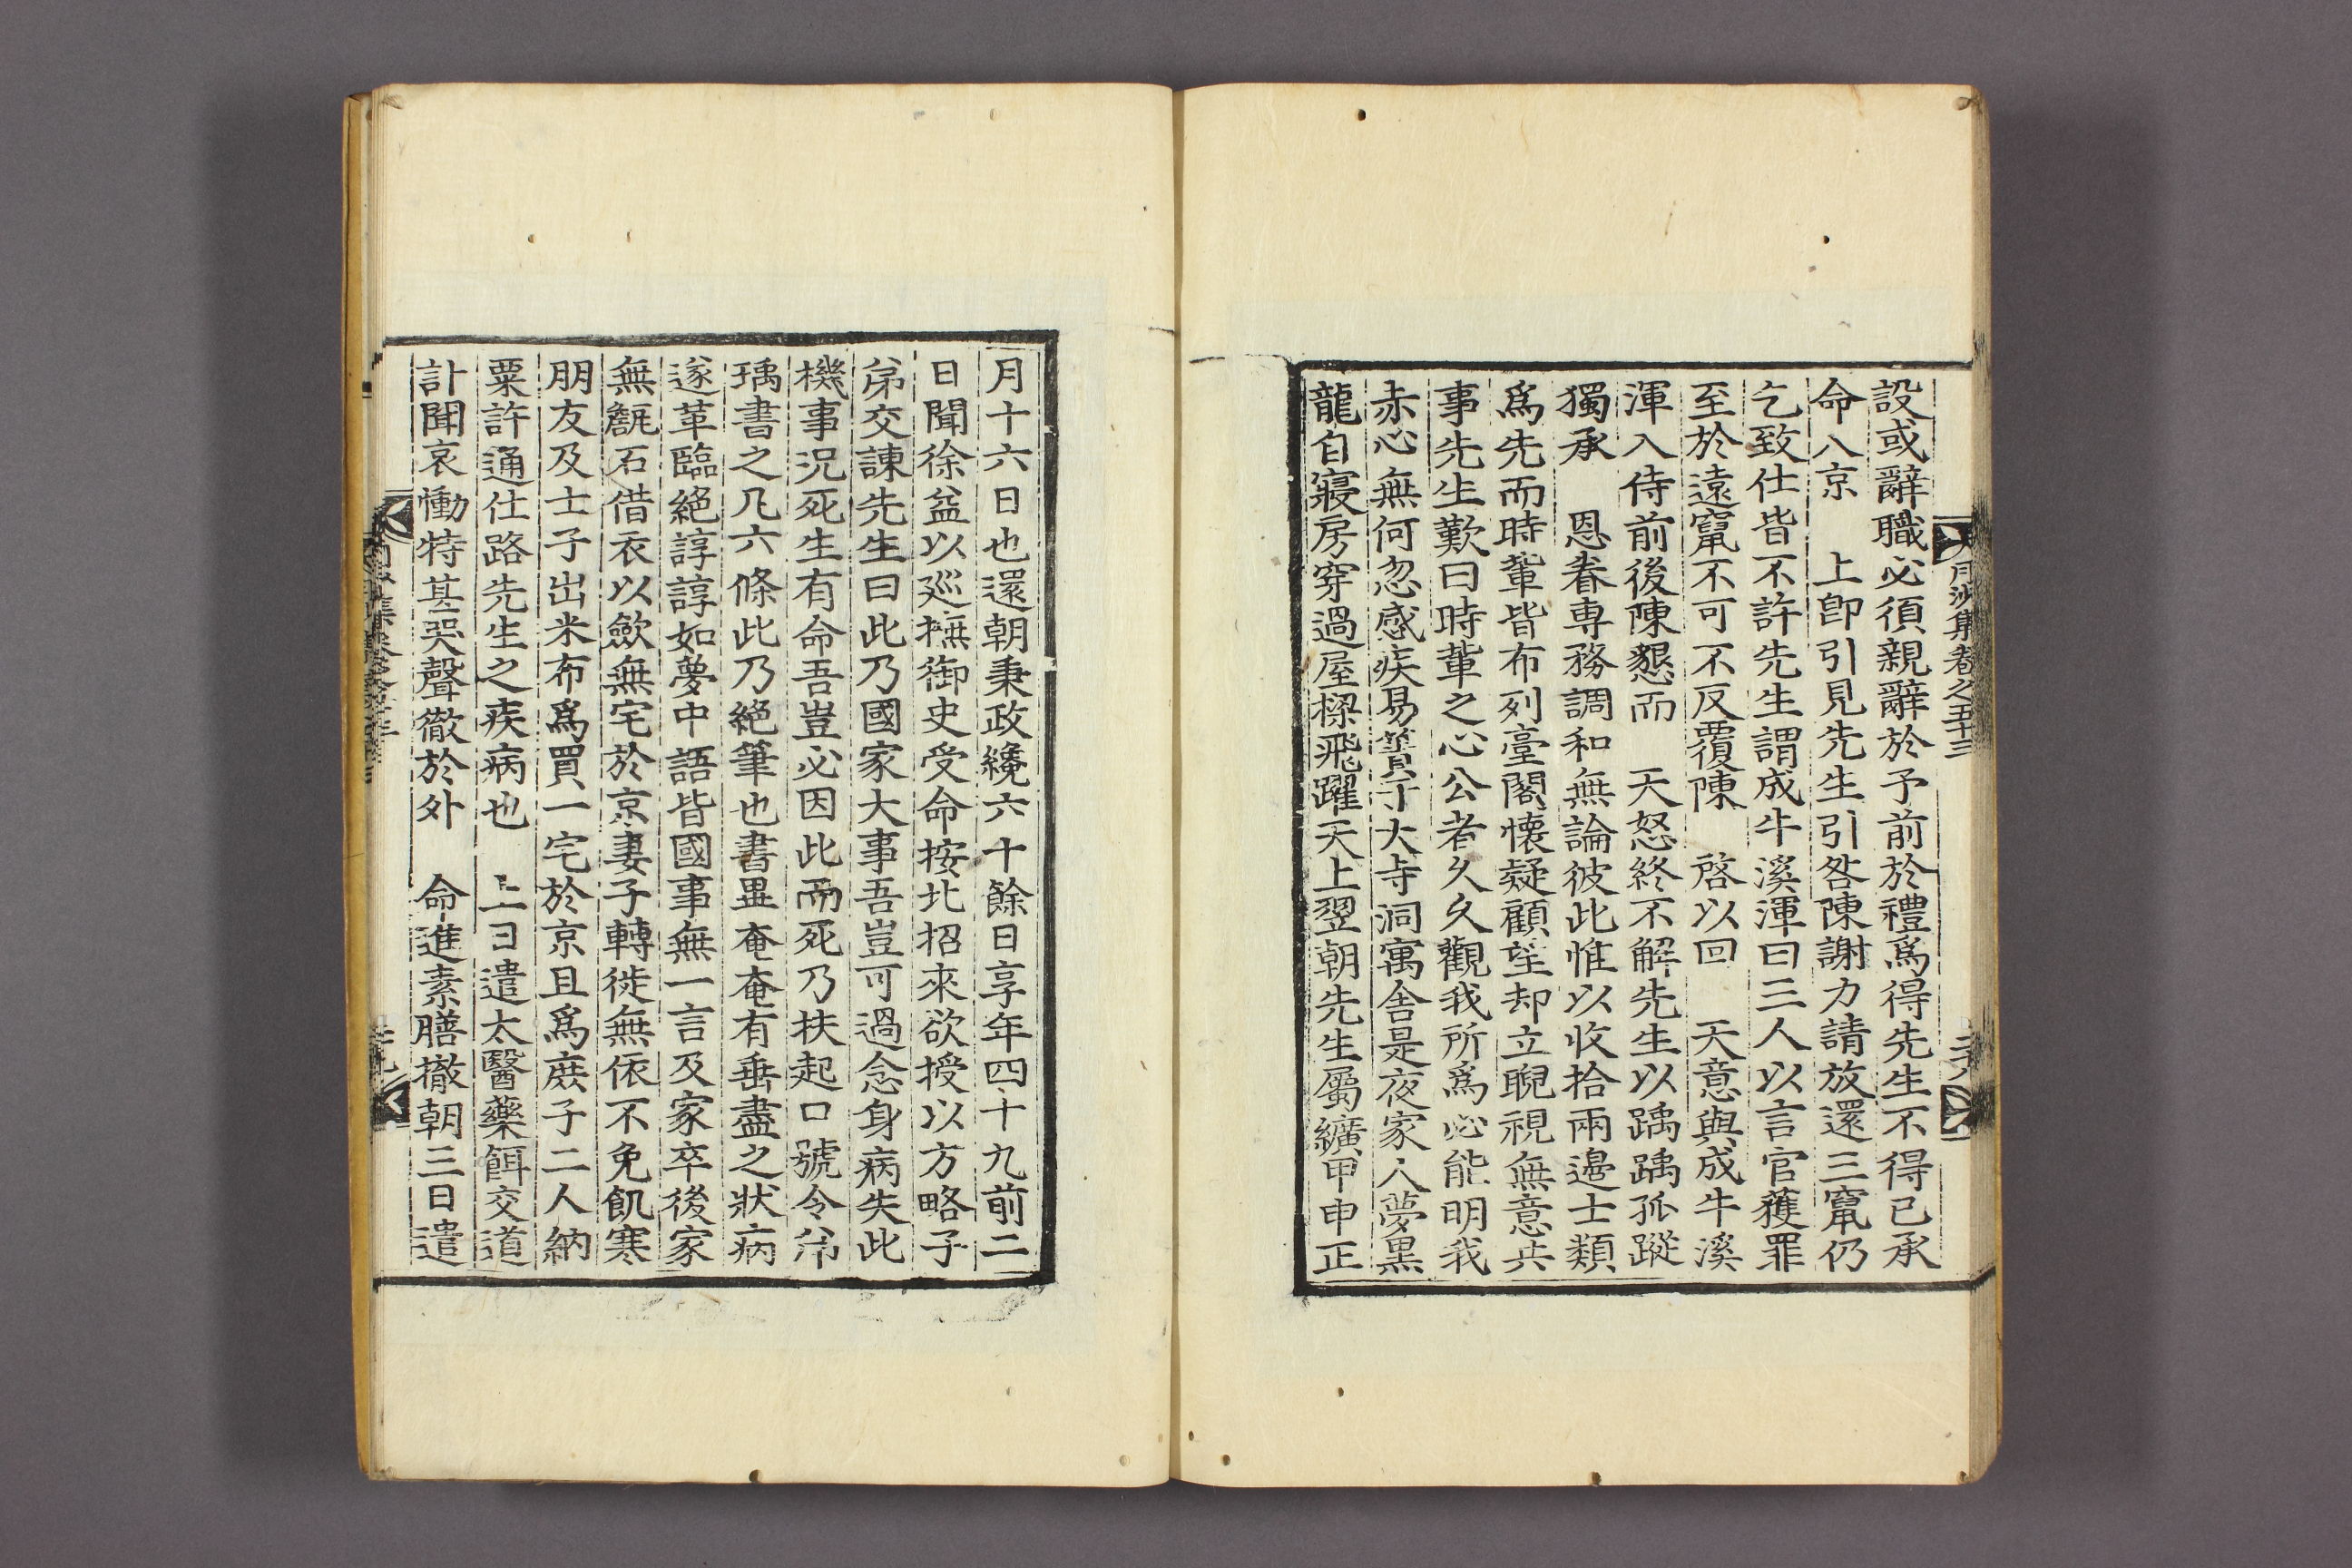 月沙集卷之五十三
二十八
設或辭職必須親辭於予前於禮爲得先生不得已承
命入京　上卽引見先生引咎陳謝力請放還三竄仍
乞致仕皆不許先生謂成牛溪渾曰三人以言官獲罪
至於遠竄不可不反覆陳　啓以回　天意與成牛溪
渾入侍前後陳懇而　天怒終不解先生以踽踽孤蹤
獨承　恩眷專務調和無論彼此惟以收拾兩邊士類
爲先而時輩皆布列臺閣懷疑顧望却立睨視無意共
事先生歎曰時輩之心公者久久觀我所爲必能明我
赤心無何忽感疾易簀于大寺洞寓舍是夜家人夢黑
龍自寢房穿過屋樑飛躍天上翌朝先生屬纊甲申正
月十六日也還朝秉政纔六十餘日享年四十九前二
日聞徐益以巡撫御史受命按北招來欲授以方略子
弟交諫先生曰此乃國家大事吾豈可過念身病失此
機事況死生有命吾豈必因此而死乃扶起口號令弟
瑀書之凡六條此乃絶筆也書畢奄奄有垂盡之狀病
遂革臨絶諄諄如夢中語皆國事無一言及家卒後家
無甔石借衣以歛無宅於京妻子轉徙無依不免飢寒
朋友及士子出米布爲買一宅於京且爲庶子二人納
粟許通仕路先生之疾病也　上日遣太醫藥餌交道
訃聞哀慟特甚哭聲徹於外　命進素膳撤朝三日遣